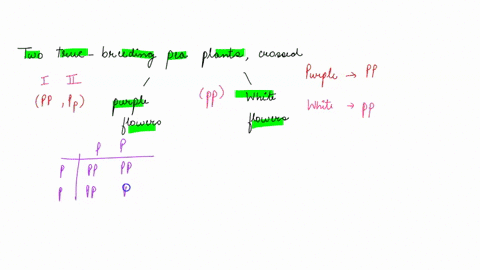 Two true-breeding pea plants, crossed
I II
(PP, Pp)
purple flowers
(pp) White flowers
Purple → PP
White → pp
P P
P PP PP
P PP P